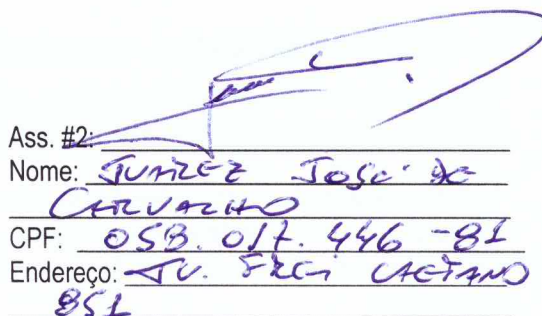 Ass. #2:
Nome: JUAREZ JOSÉ DE
CARVALHO
CPF: 058.017.446-81
Endereço: AV. FREI CAETANO
851